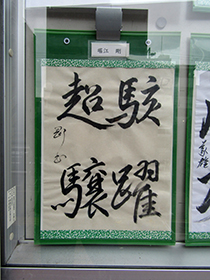 堀江 剛
駭躍
超驤
剛書